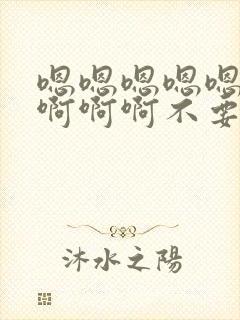 嗯嗯嗯嗯嗯
啊啊啊不要
沐水之陽